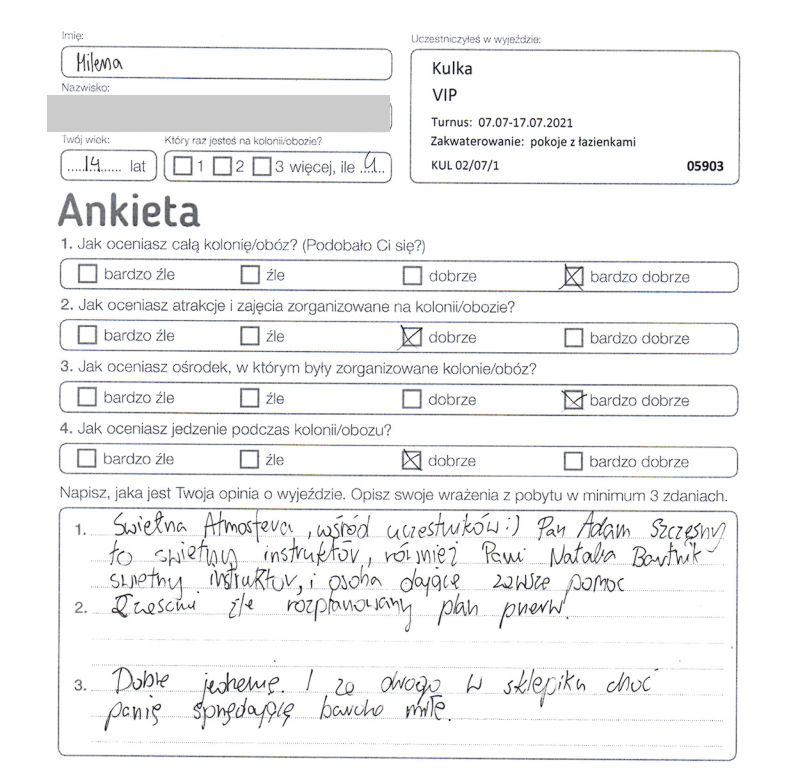 Imię:
Milena
Nazwisko:
Twój wiek:
14 lat
Który raz jesteś na kolonii/obozie?
1 2 3 więcej, ile 4
Uczestniczyłeś w wyjeździe:
Kulka
VIP
Turnus: 07.07-17.07.2021
Zakwaterowanie: pokoje z łazienkami
KUL 02/07/1 05903
Ankieta
1. Jak oceniasz całą kolonię/obóz? (Podobało Ci się?)
bardzo źle źle dobrze bardzo dobrze
2. Jak oceniasz atrakcje i zajęcia zorganizowane na kolonii/obozie?
bardzo źle źle dobrze bardzo dobrze
3. Jak oceniasz ośrodek, w którym były zorganizowane kolonie/obóz?
bardzo źle źle dobrze bardzo dobrze
4. Jak oceniasz jedzenie podczas kolonii/obozu?
bardzo źle źle dobrze bardzo dobrze
Napisz, jaka jest Twoja opinia o wyjeździe. Opisz swoje wrażenia z pobytu w minimum 3 zdaniach.
1. Świetna Atmosfera, wśród uczestników:) Pan Adam Szczęsny
to świetny instruktor, również Pani Natalia Bartnik
świetny instruktor, i osoba dające zawsze pomoc
2. źle rozplanowany plan
3. Dobre jedzenie. I za drogo w sklepiku choć
panię sprzedające bardzo miłe.